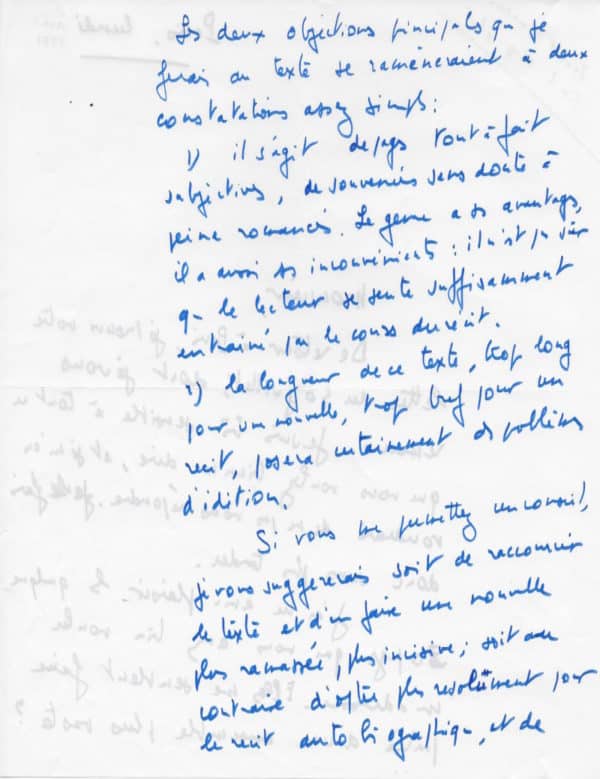 Les deux objections principales que je
ferais au texte se ramèneraient à deux
constatations assez simples :
1) il s'agit de pages tout à fait
subjectives, de souvenirs sans doute à
peine romancés. Le genre a ses avantages,
il a aussi ses inconvénients : il n'est pas sûr
que le lecteur se sente suffisamment
entraîné par le cours du récit.
2) la longueur de ce texte, trop long
pour une nouvelle, trop bref pour un
récit, posera certainement des problèmes
d'édition.
Si vous me permettez un conseil,
je vous suggérerais soit de raccourcir
le texte et d'en faire une nouvelle
plus ramassée, plus incisive ; soit au
contraire d'opter plus résolument pour
le récit autobiographique, et de